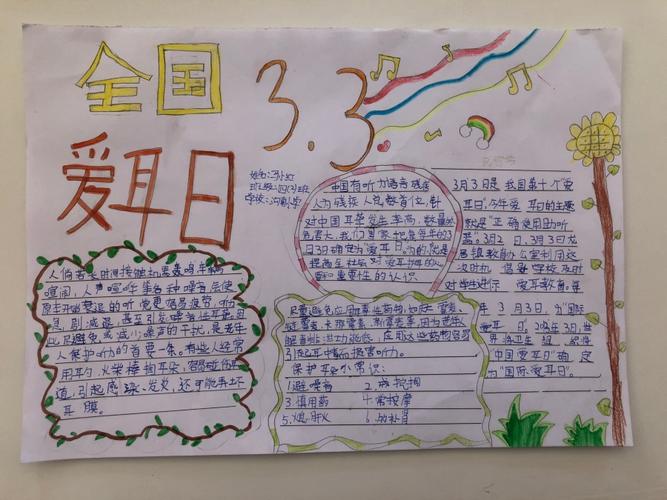 全国
爱耳日
3.3
班级:四(3)班
人们若长时间接触机器轰鸣车辆
喧闹,人声喧哗等各种噪音会使
原本开始衰退的听觉更容易疲劳,听力
急剧减退,甚至引发噪音性耳聋。因
此尽避免或减少噪声的干扰,是老年
人保护听力的首要一条。有些人经常
用耳勺、火柴棒掏耳朵,容易碰伤耳
道,引起感染、发炎,还可能弄坏
耳膜。
中国有听力语言残疾
人为残疾人总数首位,针
对中国耳聋发生率高、数量
3日确定为爱耳日,为的就是
和重要性的认识
尽量避免应用耳毒性药物,如庆大霉素、
链霉素、卡那霉素、新霉素等,因为老年人
引起耳中毒而损害听力。
保护耳朵小常识:
1.避噪音
2.戒挖掏
3.慎用药
4.常按摩
5.熄肝火
6.战补肾
3月3日是我国第十个“爱
耳日”,今年爱耳日的主题
就是“正确使用助听
器”3月2日,3月3日龙
镇教教办公室利用这
次时机,倡导学校及时
对师生进行爱耳教育。每
年3月3日,为“国际
爱耳日”,2013年3日,世
界将卫生组织将
“中国爱耳日”确定
为“国际爱耳日”。